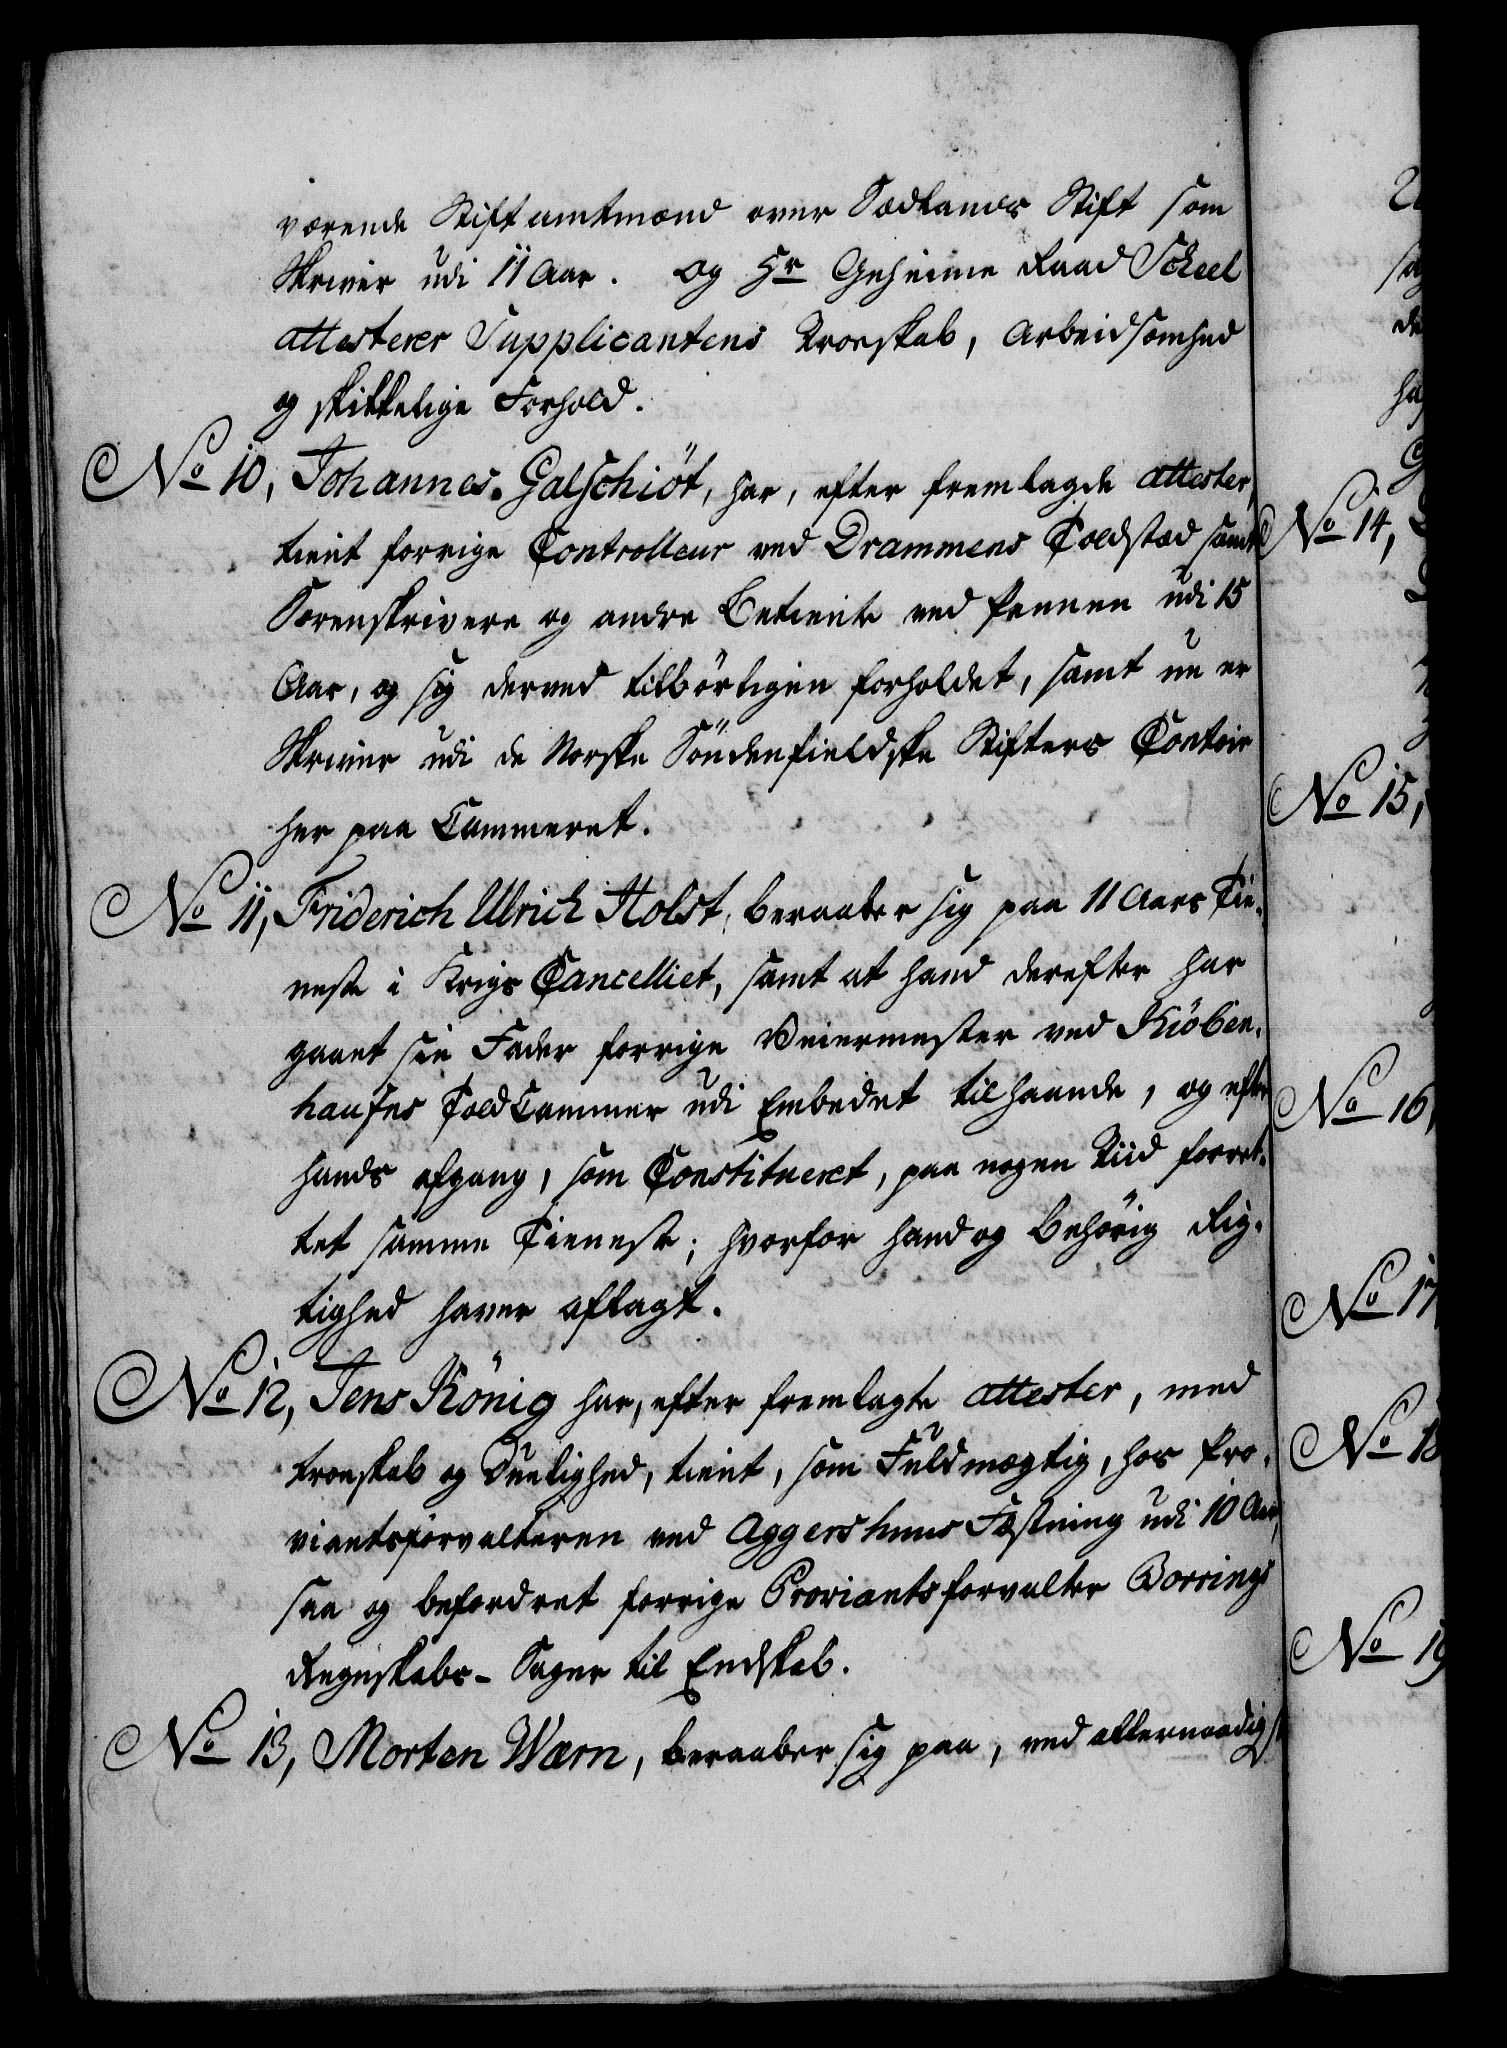 værende Stiftamtmænd over Sædlands Stift som
Skriver udi 11 Aar. Og Hr Geheime Raad Scheel
attesterer Supplicantens Troeskab, Arbeidsomhed
og skikkelige Forhold.
No 10, Johannes Galschiöt, har, efter fremlagde attester,
tient forrige Controlleur ved Drammens Toldstæd samt
Sorenskrivere og andre Betiente ved Pennen udi 15
Aar, og sig derved tilbörligen forholdet, samt nu er
Skriver udi de Norske Söndenfieldske Stifters Contoir
her paa Cammeret.
No 11, Friderich Ulrich Holst, beraaber sig paa 11 Aars Tie-
neste i Krigs Cancelliet, samt at hand derefter har
gaaet sin Fader forrige Veiermester ved Kiöben-
haufns Told Cammer udi Embedet tilhaande, og efter
hands afgang, som Constitueret, paa nogen Tiid forret-
tet samme Tieneste; hvorfor hand og behörig Rig-
tighed haver aflagt.
No 12, Jens König har, efter fremlagte attester, med
troeskab og Duelighed, tient, som Fuldmægtig, hos Pro-
viantsforvalteren ved Aggershuus Fæstning udi 10 Aar,
saa og befordret forrige Proviantsforvalter Borrings
Regnskabs- Sager til Endskab.
No 13, Morten Wærn, beraaber sig paa, ved allernaadigst
No 14,
No 15,
No 16,
No 17
No 18
No 19